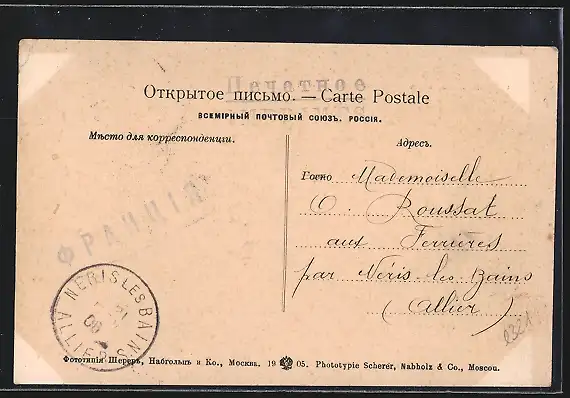 Печатное
Открытое письмо. — Carte Postale
ВСЕМІРНЫЙ ПОЧТОВЫЙ СОЮЗЪ. РОССІЯ.
Мѣсто для корреспонденціи.
Адресъ.
Mademoiselle
O Roussat
aux Ferrières
par Néris les Bains
(Allier)
ФРАНЦІЯ
NERIS LES BAINS
ALLIER
Фототипія Шереръ, Набгольцъ и Ко., Москва. 19 05. Phototypie Scherer, Nabholz & Co., Moscou.